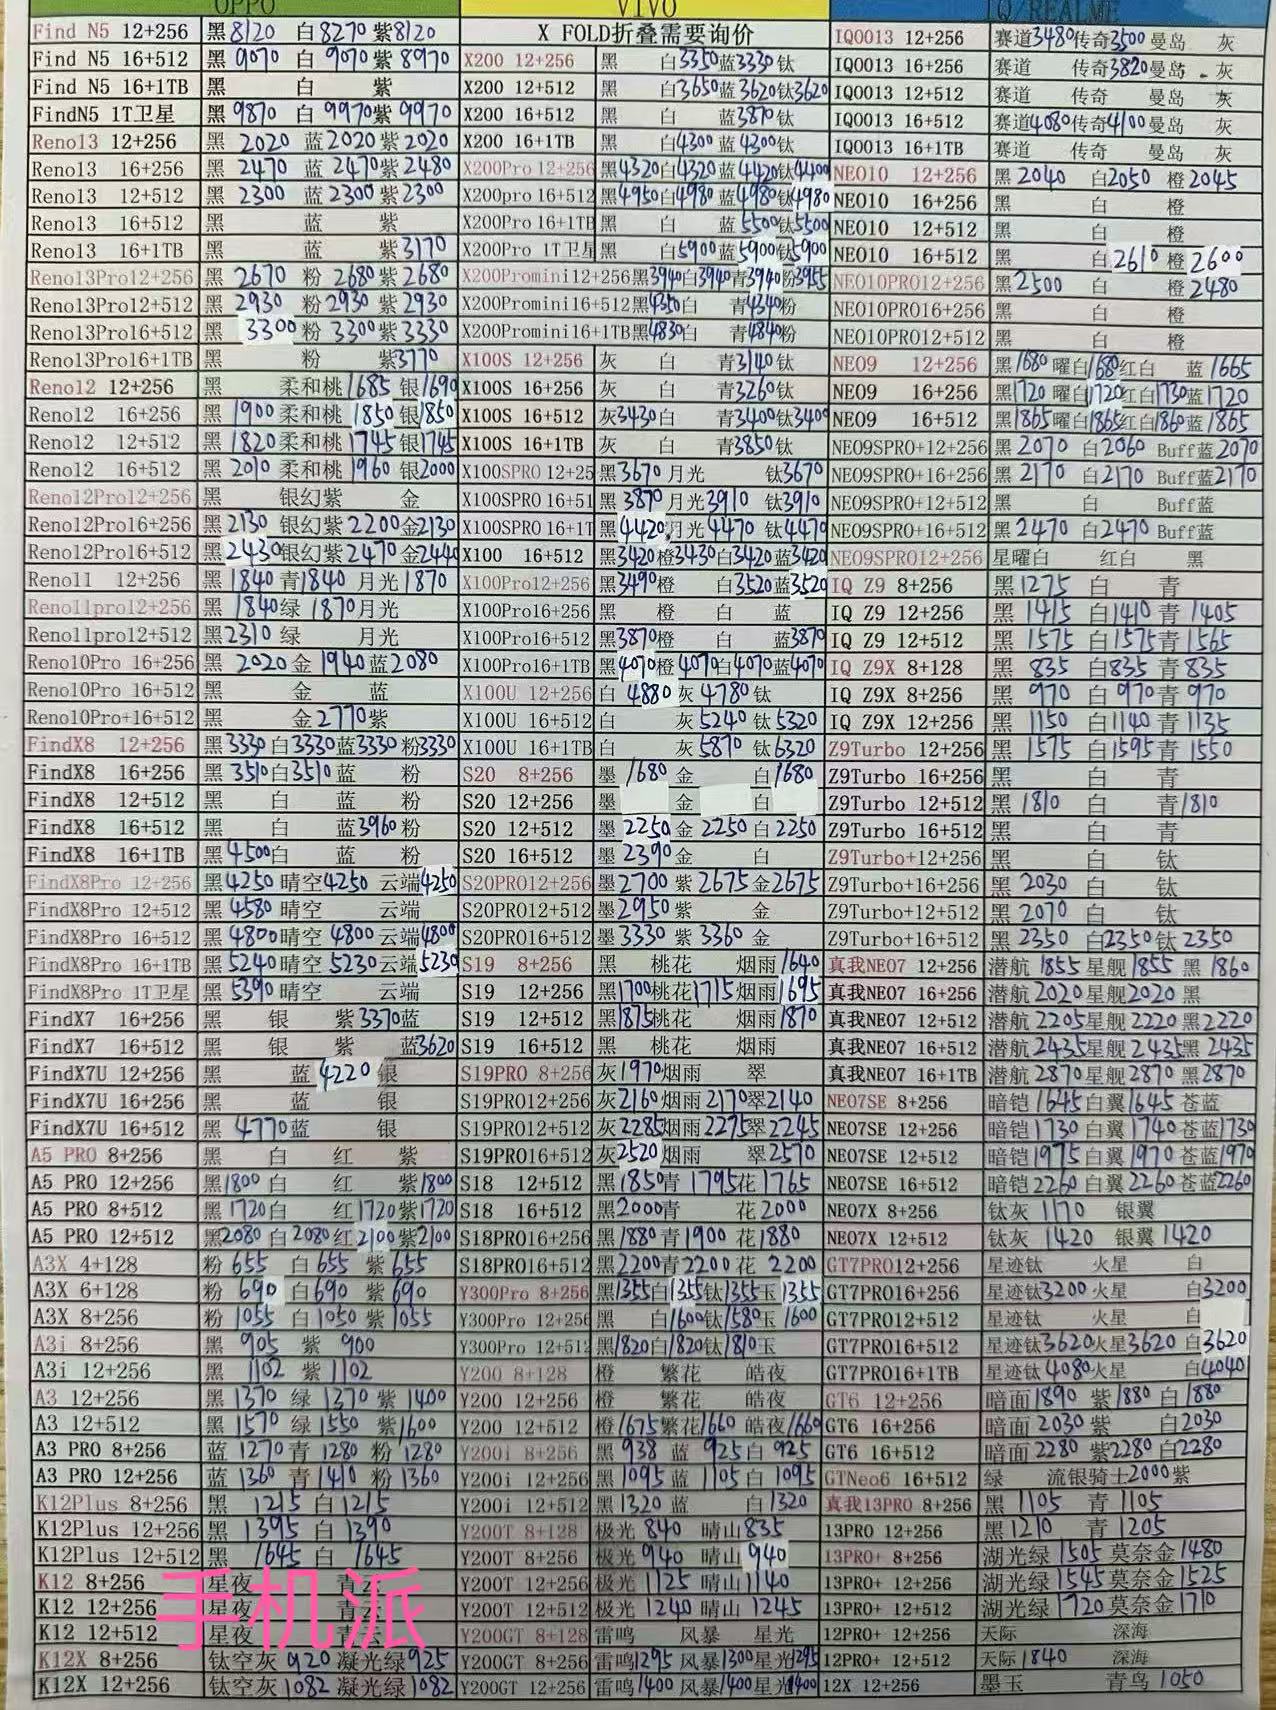 OPPO VIVO IQ/REALME
Find N5 12+256 黑8120 白8270紫8120 X FOLD折叠需要询价 IQOO13 12+256 赛道3480传奇3500曼岛 灰
Find N5 16+512 黑9070 白9070紫8970 X200 12+256 黑 白3350蓝3330钛 IQOO13 16+256 赛道 传奇3820曼岛 灰
Find N5 16+1TB 黑 白 紫 X200 12+512 黑 白3650蓝3620钛3620 IQOO13 12+512 赛道 传奇 曼岛 灰
FindN5 1T卫星 黑9870 白9970紫9970 X200 16+512 黑 白 蓝3870钛 IQOO13 16+512 赛道4080传奇4100曼岛 灰
Reno13 12+256 黑2020 蓝2020紫2020 X200 16+1TB 黑 白4300蓝4300钛 IQOO13 16+1TB 赛道 传奇 曼岛 灰
Reno13 16+256 黑2470 蓝2470紫2480 X200Pro 12+256 黑4320白4320蓝4420钛4400 NEO10 12+256 黑2040 白2050 橙2045
Reno13 12+512 黑2300 蓝2300紫2300 X200pro 16+512 黑4950白4980蓝4980钛4980 NEO10 16+256 黑 白 橙
Reno13 16+512 黑 蓝 紫 X200Pro 16+1TB 黑 白 蓝5500钛5500 NEO10 12+512 黑 白 橙
Reno13 16+1TB 黑 蓝 紫3170 X200Pro 1T卫星 黑 白5900蓝5900钛5900 NEO10 16+512 黑 白2610橙2600
Reno13Pro12+256 黑2670 粉2680紫2680 X200Promini12+256黑3940白3940青3940粉3955 NEO10PRO12+256 黑2500 白 橙2480
Reno13Pro12+512 黑2930 粉2930紫2930 X200Promini16+512黑4350白 青4340粉 NEO10PRO16+256 黑 白 橙
Reno13Pro16+512 黑3300粉3300紫3330 X200Promini16+1TB黑4830白 青4840粉 NEO10PRO12+512 黑 白 橙
Reno13Pro16+1TB 黑 粉 紫3770 X100S 12+256 灰 白 青3140钛 NEO9 12+256 黑1680曜白1680红白 蓝1665
Reno12 12+256 黑 柔和桃1685银1690 X100S 16+256 灰 白 青3260钛 NEO9 16+256 黑1720曜白1720红白1730蓝1720
Reno12 16+256 黑1900柔和桃1850银1850 X100S 16+512 灰3430白 青3400钛3400 NEO9 16+512 黑1865曜白1865红白1860蓝1865
Reno12 12+512 黑1820柔和桃1745银1745 X100S 16+1TB 灰 白 青3850钛 NEO9SPRO+12+256 黑2070 白2060 Buff蓝2070
Reno12 16+512 黑2010柔和桃1960银2000 X100SPRO 12+25 黑3670月光 钛3670 NEO9SPRO+16+256 黑2170 白2170 Buff蓝2170
Reno12Pro12+256 黑 银幻紫 金 X100SPRO 16+51 黑3870月光3910 钛3910 NEO9SPRO+12+512 黑 白 Buff蓝
Reno12Pro16+256 黑2130 银幻紫2200金2130 X100SPRO 16+1T 黑4420月光4470 钛4470 NEO9SPRO+16+512 黑2470 白2470 Buff蓝
Reno12Pro16+512 黑2430银幻紫2470金2440 X100 16+512 黑3420橙3430白3420蓝3420 NEO9SPRO12+256 星曜白 红白 黑
Reno11 12+256 黑1840青1840 月光1870 X100Pro12+256 黑3490橙 白3520蓝3520 IQ Z9 8+256 黑1275 白 青
Reno11pro12+256 黑1840绿1870月光 X100Pro16+256 黑 橙 白 蓝 IQ Z9 12+256 黑1415 白1410青1405
Reno11pro12+512 黑2310绿 月光 X100Pro16+512 黑3870橙 白 蓝3870 IQ Z9 12+512 黑1575 白1575青1565
Reno10Pro 16+256 黑2020金1940蓝2080 X100Pro16+1TB 黑4070橙4070白4070蓝4070 IQ Z9X 8+128 黑835 白835青835
Reno10Pro 16+512 黑 金 蓝 X100U 12+256 白4880灰4780钛 IQ Z9X 8+256 黑970 白970青970
Reno10Pro+16+512 黑 金2770紫 X100U 16+512 白 灰5240钛5320 IQ Z9X 12+256 黑1150 白1140青1135
FindX8 12+256 黑3330白3330蓝3330粉3330 X100U 16+1TB 白 灰5870钛6320 Z9Turbo 12+256 黑1575 白1595青1550
FindX8 16+256 黑3510白3510蓝 粉 S20 8+256 墨1680金 白1680 Z9Turbo 16+256 黑 白 青
FindX8 12+512 黑 白 蓝 粉 S20 12+256 墨 金 白 Z9Turbo 12+512 黑1810 白 青1810
FindX8 16+512 黑 白 蓝3960粉 S20 12+512 墨2250金2250白2250 Z9Turbo 16+512 黑 白 青
FindX8 16+1TB 黑4500白 蓝 粉 S20 16+512 墨2390金 白 Z9Turbo+12+256 黑 白 钛
FindX8Pro 12+256 黑4250晴空4250云端4250 S20PRO12+256 墨2700紫2675金2675 Z9Turbo+16+256 黑2030 白 钛
FindX8Pro 12+512 黑4580晴空 云端 S20PRO12+512 墨2950紫 金 Z9Turbo+12+512 黑2070 白 钛
FindX8Pro 16+512 黑4800晴空4800云端4800 S20PRO16+512 墨3330紫3360金 Z9Turbo+16+512 黑2350 白2350钛2350
FindX8Pro 16+1TB 黑5240晴空5230云端5230 S19 8+256 黑 桃花 烟雨1640 真我NEO7 12+256 潜航1855星舰1855黑1860
FindX8Pro 1T卫星 黑5390晴空 云端 S19 12+256 黑1700桃花1715烟雨1695 真我NEO7 16+256 潜航2020星舰2020黑
FindX7 16+256 黑 银 紫3370蓝 S19 12+512 黑1875桃花 烟雨1870 真我NEO7 12+512 潜航2205星舰2220黑2220
FindX7 16+512 黑 银 紫 蓝3620 S19 16+512 黑 桃花 烟雨 真我NEO7 16+512 潜航2435星舰2435黑2435
FindX7U 12+256 黑 蓝4220银 S19PRO 8+256 灰1970烟雨 翠 真我NEO7 16+1TB 潜航2870星舰2870黑2870
FindX7U 16+256 黑 蓝 银 S19PRO12+256 灰2160烟雨2170翠2140 NEO7SE 8+256 暗铠1645白翼1645苍蓝
FindX7U 16+512 黑4770蓝 银 S19PRO12+512 灰2285烟雨2275翠2245 NEO7SE 12+256 暗铠1730白翼1740苍蓝1730
A5 PRO 8+256 黑 白 红 紫 S19PRO16+512 灰2520烟雨 翠2570 NEO7SE 12+512 暗铠1975白翼1970苍蓝1970
A5 PRO 12+256 黑1800白 红 紫1800 S18 12+512 黑1850青1795花1765 NEO7SE 16+512 暗铠2260白翼2260苍蓝2260
A5 PRO 8+512 黑1720白 红1720紫1720 S18 16+512 黑2000青 花2000 NEO7X 8+256 钛灰1170 银翼
A5 PRO 12+512 黑2080白2080红2100紫2100 S18PRO16+256 黑1880青1900花1880 NEO7X 12+512 钛灰1420 银翼1420
A3X 4+128 粉655 白655 紫655 S18PRO16+512 黑2200青2200花2200 GT7PRO12+256 星迹钛 火星 白
A3X 6+128 粉690 白690 紫690 Y300Pro 8+256 黑1355白1355钛1355玉1355 GT7PRO16+256 星迹钛3200火星 白3200
A3X 8+256 粉1055 白1050紫1055 Y300Pro 12+256 黑 白1600钛1580玉1600 GT7PRO12+512 星迹钛 火星 白
A3i 8+256 黑905 紫900 Y300Pro 12+512 黑1820白1820钛1810玉 GT7PRO16+512 星迹钛3620火星3620白3620
A3i 12+256 黑1102 紫1102 Y200 8+128 橙 繁花 皓夜 GT7PRO16+1TB 星迹钛4080火星 白4040
A3 12+256 黑1370 绿1370紫1400 Y200 12+256 橙 繁花 皓夜 GT6 12+256 暗面1890紫1880白1880
A3 12+512 黑1570 绿1550紫1600 Y200 12+512 橙1675繁花1660皓夜1660 GT6 16+256 暗面2030紫 白2030
A3 PRO 8+256 蓝1270青1280粉1280 Y200i 8+256 黑938 蓝925白925 GT6 16+512 暗面2280紫2280白2280
A3 PRO 12+256 蓝1360青1410粉1360 Y200i 12+256 黑1095蓝1105白1095 GTNeo6 16+512 绿 流银骑士2000紫
K12Plus 8+256 黑1215白1215 Y200i 12+512 黑1320蓝 白1320 真我13PRO 8+256 黑1105 青1105
K12Plus 12+256 黑1395白1390 Y200T 8+128 极光840 晴山835 13PRO 12+256 黑1210 青1205
K12Plus 12+512 黑1645白1645 Y200T 8+256 极光940 晴山940 13PRO+ 8+256 湖光绿1505莫奈金1480
K12 8+256 星夜 青云 Y200T 12+256 极光1125晴山1140 13PRO+ 12+256 湖光绿1545莫奈金1525
K12 12+256 星夜 青云 Y200T 12+512 极光1240晴山1245 13PRO+ 12+512 湖光绿1720莫奈金1710
K12 12+512 星夜 青云 Y200GT 8+128 雷鸣 风暴 星光 12PRO+ 12+256 天际 深海
K12X 8+256 钛空灰920凝光绿925 Y200GT 8+256 雷鸣1295风暴1300星光1295 12PRO+ 12+512 天际1840 深海
K12X 12+256 钛空灰1082凝光绿1082 Y200GT 12+256 雷鸣1400风暴1400星光1400 12X 12+256 墨玉 青鸟1050
手机派